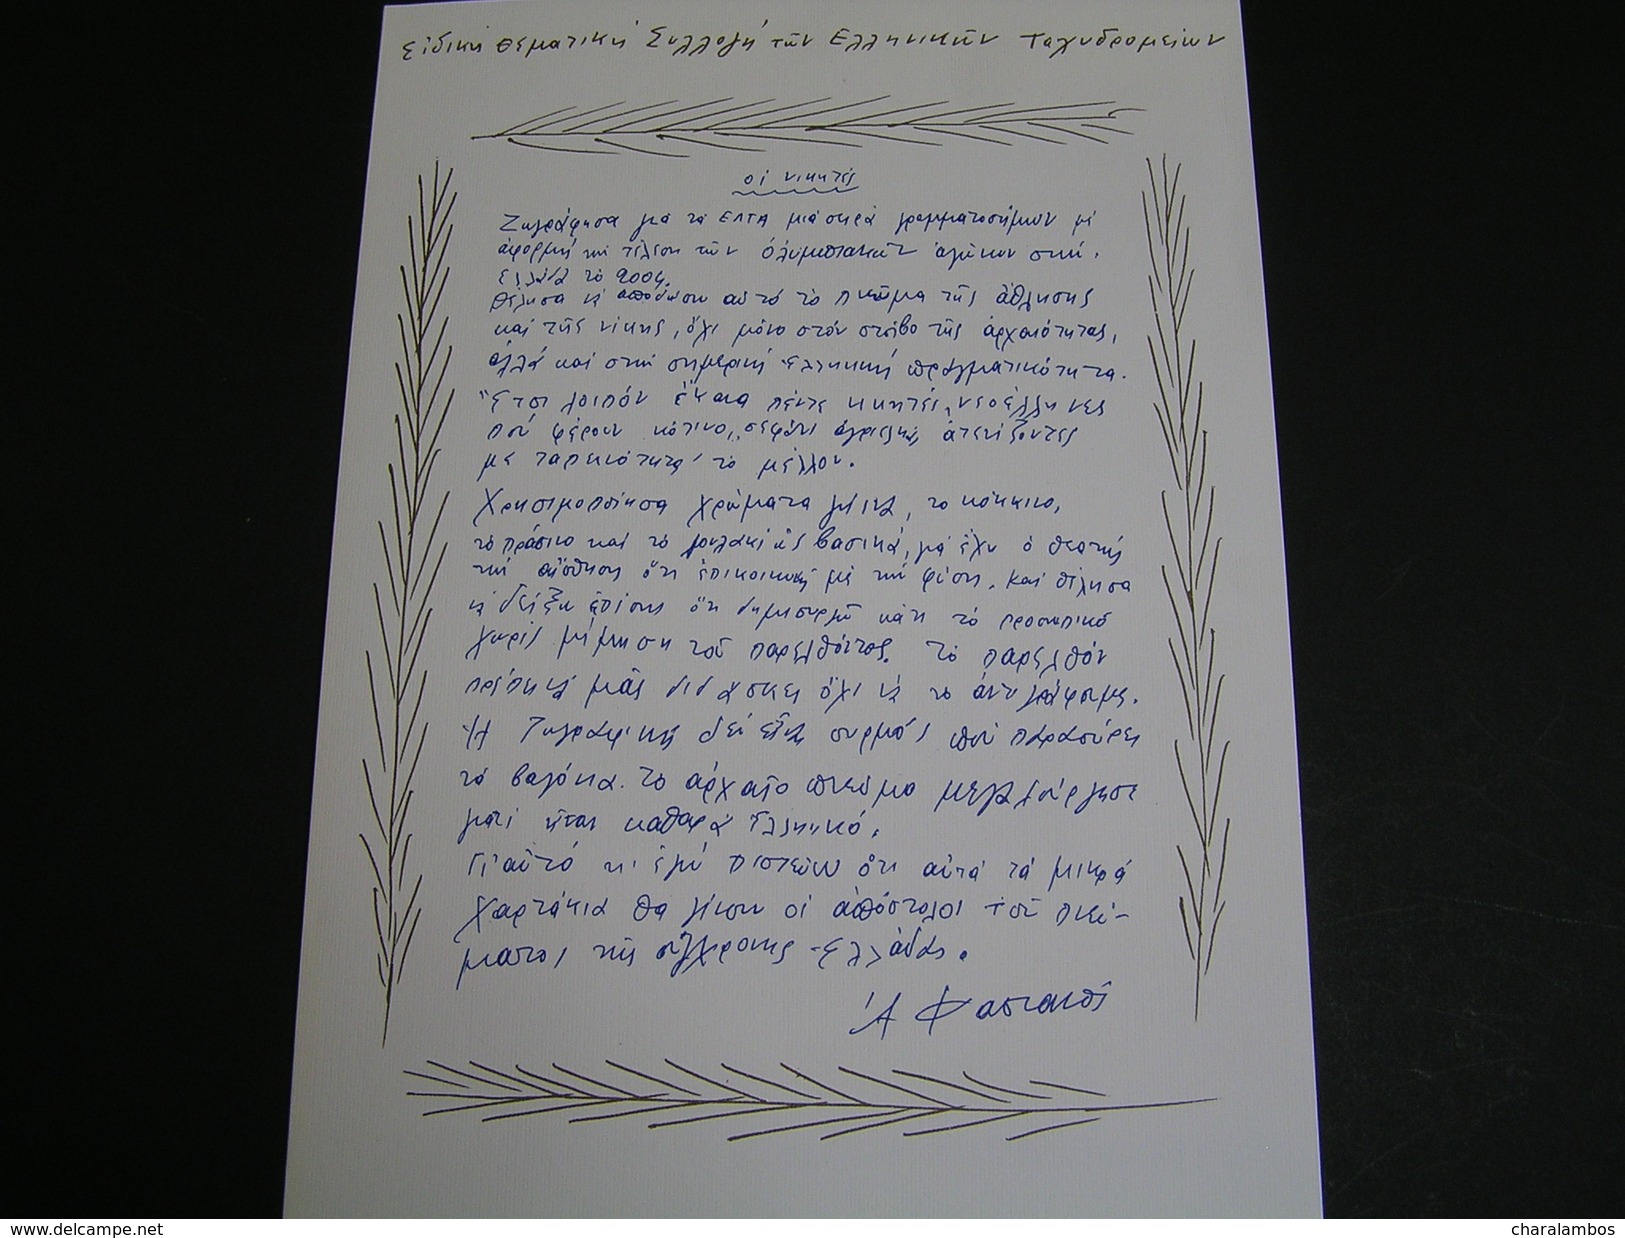 Εἰδική Θεματική Συλλογή τῶν Ἑλληνικῶν Ταχυδρομείων
οἱ νικητές
Ζωγράφησα γιά τά ΕΛΤΑ μιά σειρά γραμματοσήμων μέ
ἀφορμή τήν τέλεση τῶν Ὀλυμπιακῶν ἀγώνων στήν
Ἑλλάδα τό 2004.
Θέλησα νά ἀποδώσω αὐτό τό πνεῦμα τῆς ἄθλησης
καί τῆς νίκης, ὄχι μόνο στόν στίβο τῆς ἀρχαιότητας,
ἀλλά καί στήν σημερινή ἑλληνική πραγματικότητα.
Ἔτσι λοιπόν ἔκανα πέντε νικητές, νεοέλληνες
πού φέρουν κότινο, στεφάνι ἀγριελιᾶς, ἀτενίζοντες
μέ ταπεινότητα τό μέλλον.
Χρησιμοποίησα χρώματα γήινα, τό κόκκινο,
τό πράσινο καί τό μουλακί ὡς βασικά, γιά νά ἔχει ὁ θεατής
τήν αἴσθηση ὅτι ἐπικοινωνεῖ μέ τήν φύση. Καί θέλησα
νά δείξω ἐπίσης ὅτι δημιουργῶ κάτι τό προσωπικό
χωρίς μίμηση τοῦ παρελθόντος. Τό παρελθόν
πρέπει νά μᾶς διδάσκει ὄχι νά τό ἀντιγράφουμε.
Ἡ ζωγραφική δέν εἶναι συρμός πού παρασύρει
τά βαγόνια. Τό ἀρχαῖο πνεῦμα μεγαλούργησε
γιατί ἦταν καθαρά Ἑλληνικό.
Γι' αὐτό κι' ἐγώ πιστεύω ὅτι αὐτά τά μικρά
χαρτάκια θά γίνουν οἱ ἀπόστολοι τοῦ πνεύ-
ματος τῆς σύγχρονης Ἑλλάδας.
Ἀ Φασιανός
www.delcampe.net
charalambos